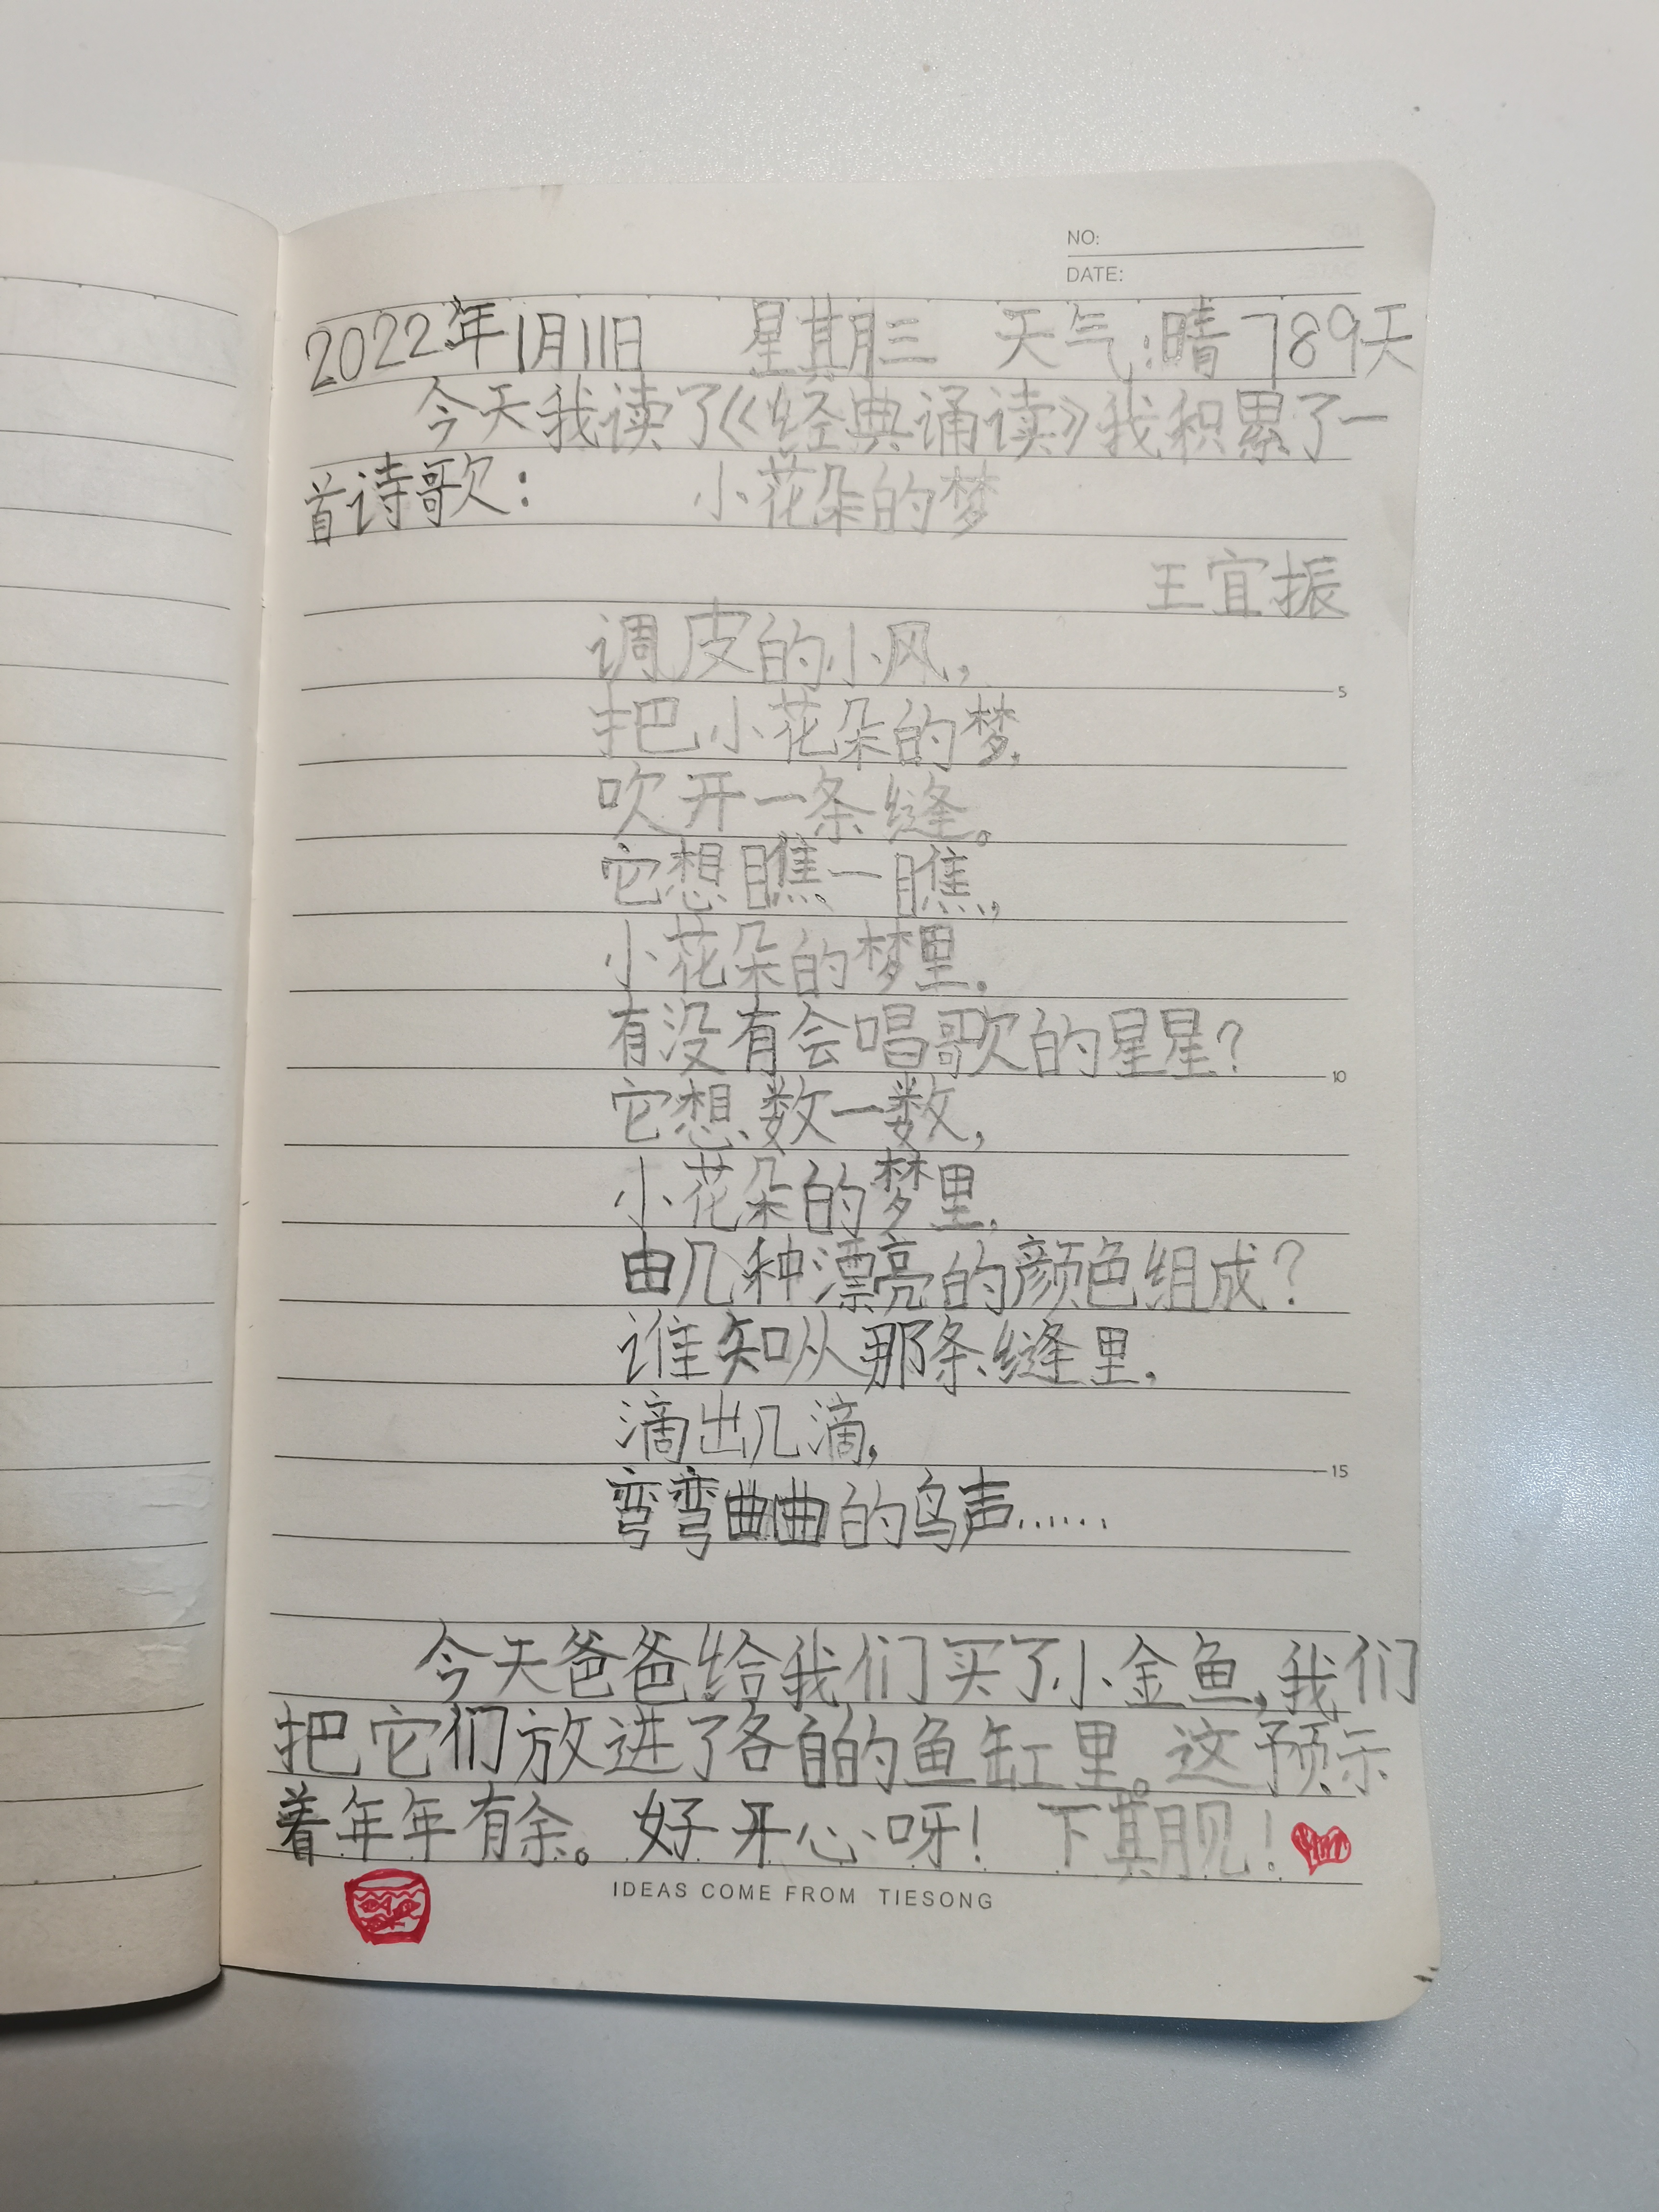 NO:
DATE:
2022年1月11日 星期三 天气:晴 789天
今天我读了《经典诵读》我积累了一
首诗歌: 小花朵的梦
王宜振
调皮的小风,
5
把小花朵的梦,
吹开一条缝。
它想瞧一瞧,
小花朵的梦里。
有没有会唱歌的星星?
10
它想数一数,
小花朵的梦里,
由几种漂亮的颜色组成?
谁知从那条缝里,
滴出几滴,
15
弯弯曲曲的鸟声……
今天爸爸给我们买了小金鱼,我们
把它们放进了各自的鱼缸里。这预示
着年年有余。好开心呀! 下期见!
IDEAS COME FROM TIESONG